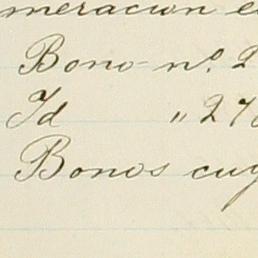 meracion e
Bono nº 2
Id " 27
Bonos cuy